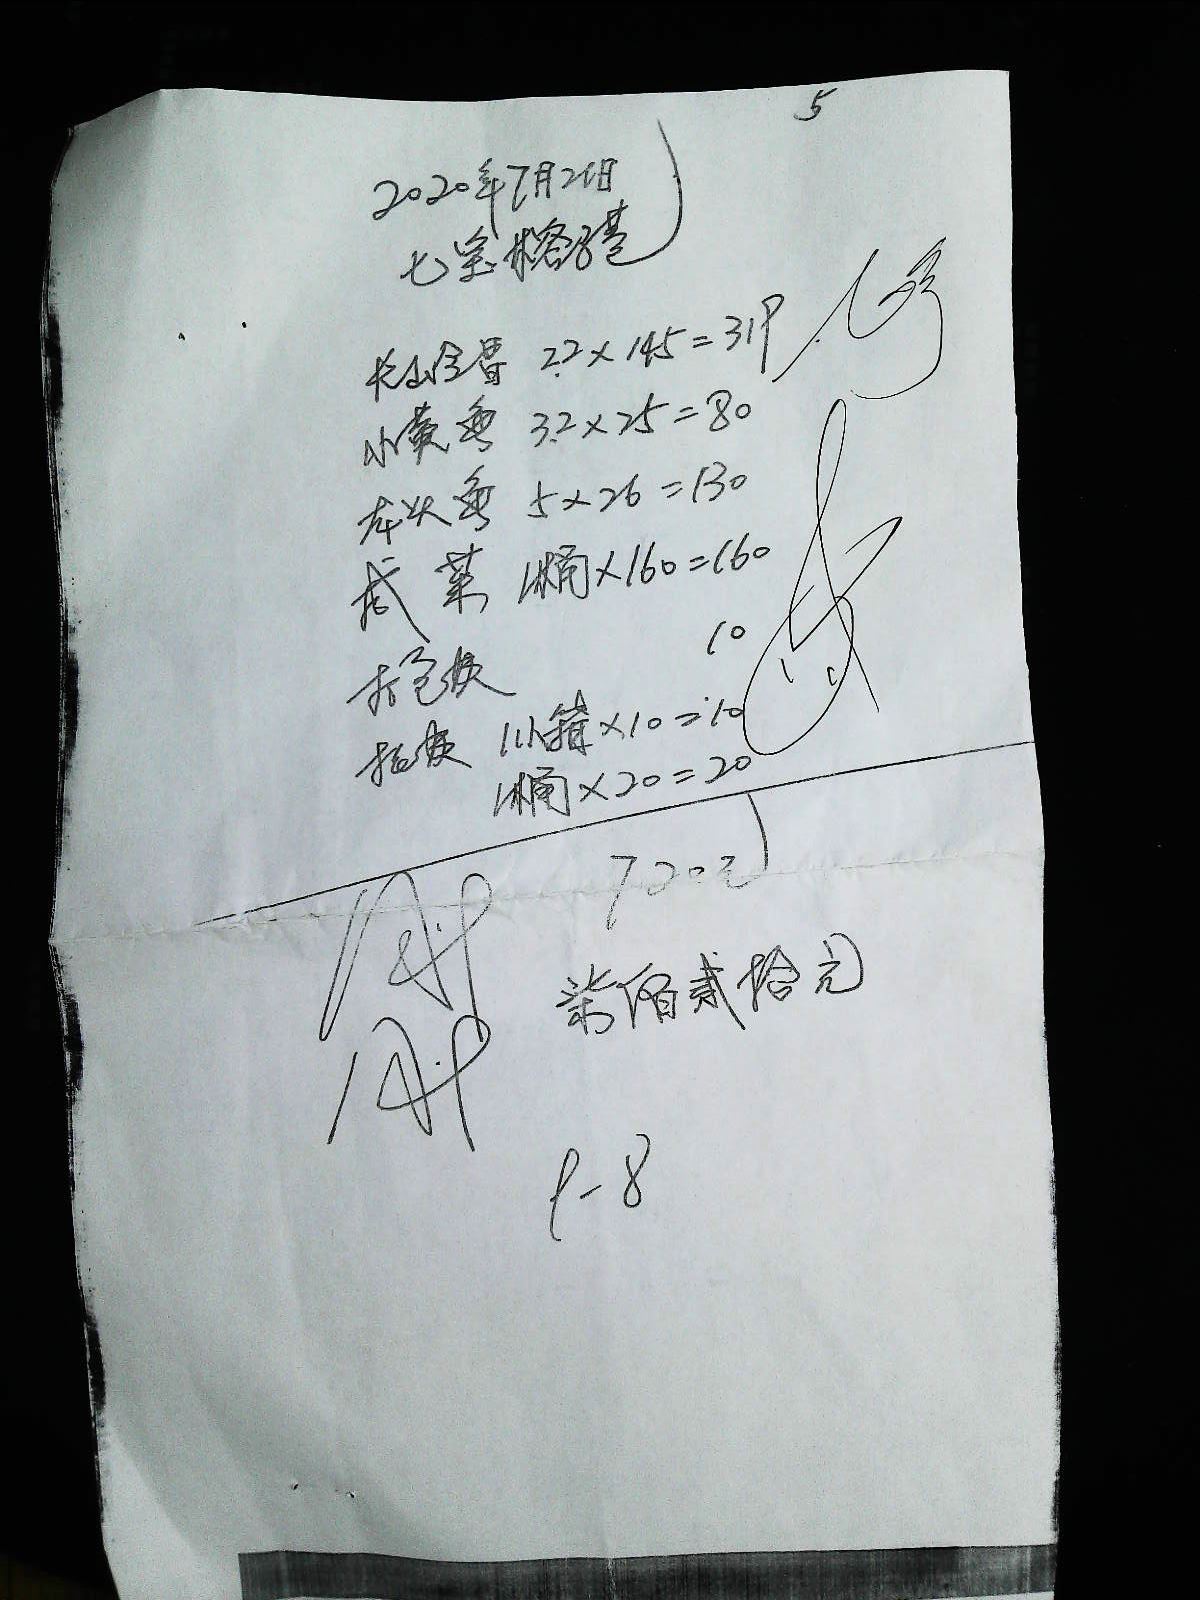 5
2020年7月21日
七宝榕港
长山全鲁 2.2×145=319
小黄鱼 3.2×25=80
龙头鱼 5×26=130
咸菜 1桶×160=160
打包费 10
托费 1小箱×10=10
1桶×20=20
720元
柒佰贰拾元
9-8